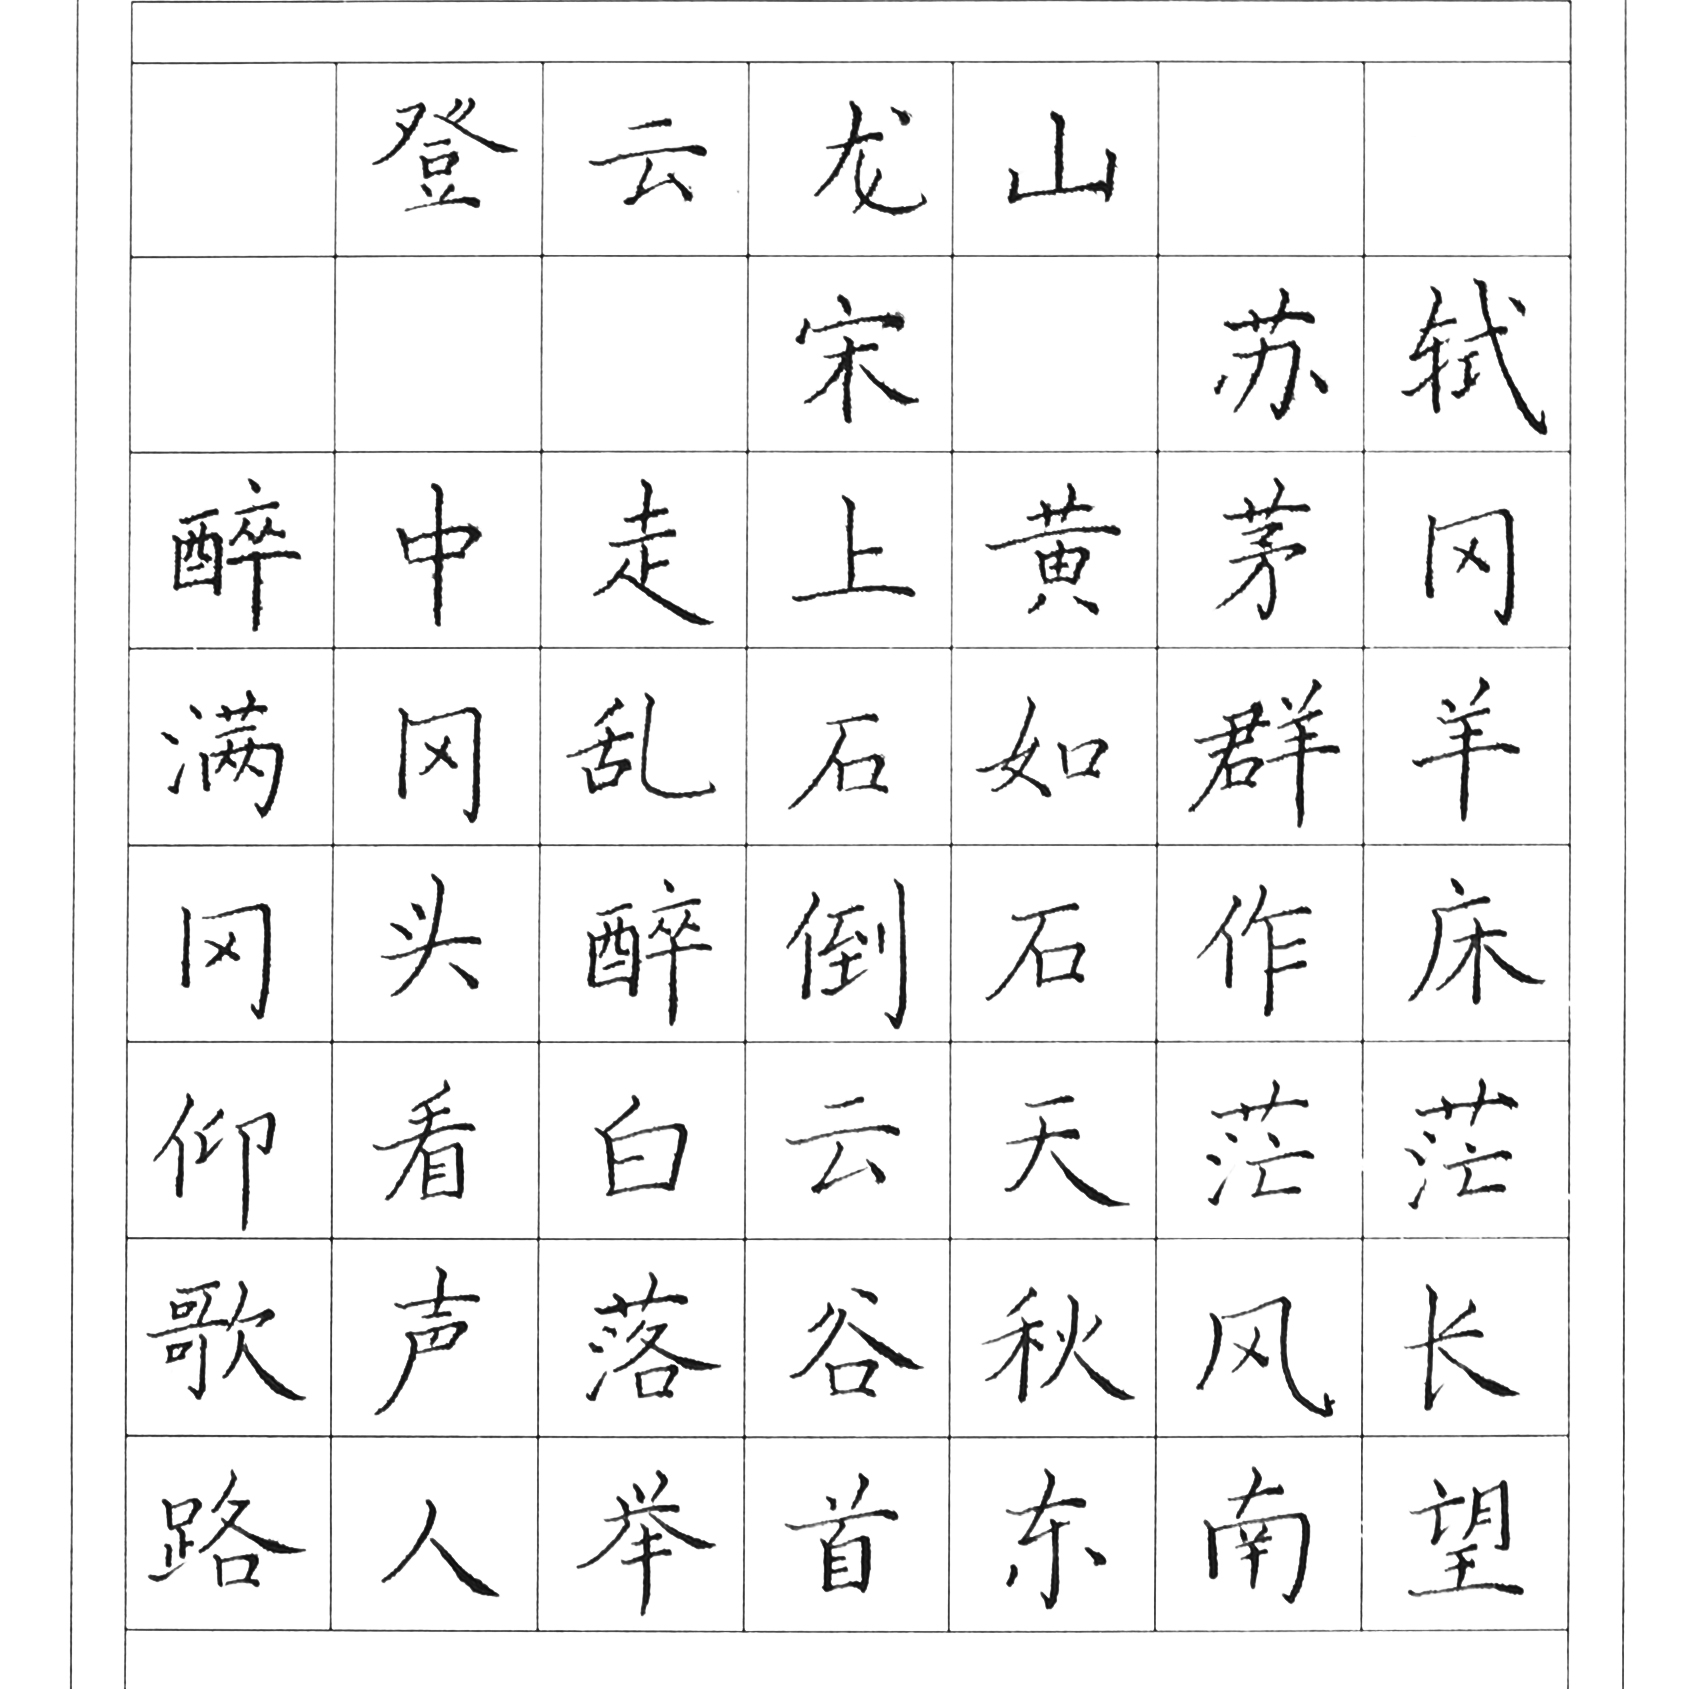 登云龙山
宋 苏轼
醉中走上黄茅冈
满冈乱石如群羊
冈头醉倒石作床
仰看白云天茫茫
歌声落谷秋风长
路人举首东南望